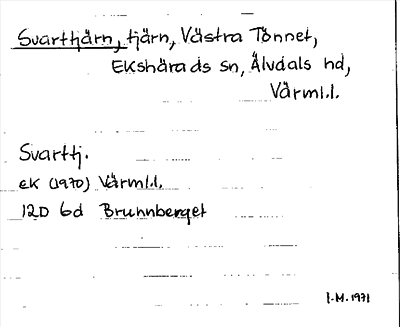 Svarttjärn, tjärn, Västra Tönnet,
Ekshärads sn, Älvdals hd,
Värml.l.
Svarttj.
eK (1970) Värml.l.
12D 6d Brunnberget
I.M. 1971